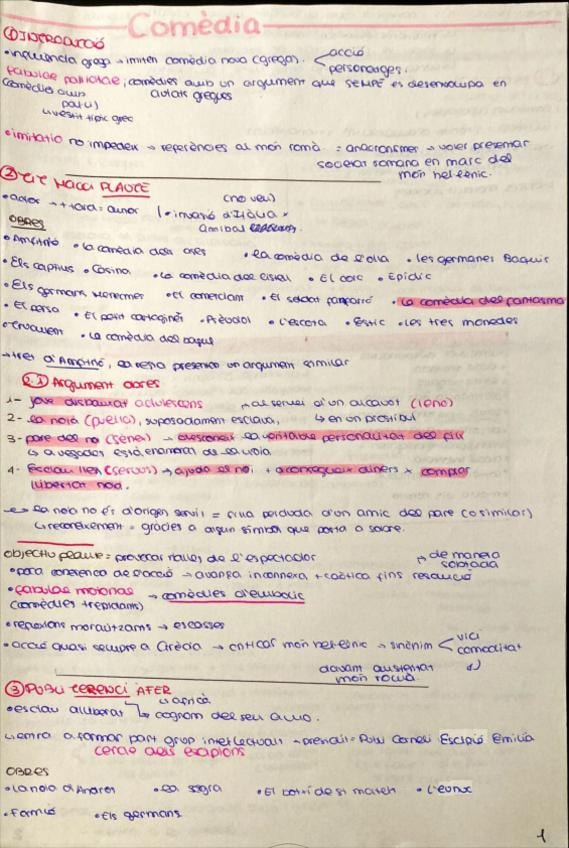 Comèdia
① INTRODUCCIÓ
• influència grega → imiten comèdia nova (grega). < acció
personatges.
fabulae palliatae, comèdies amb un argument que sempre es desenvolupa en
(comèdies amb ciutats gregues
pal·li)
↳ vestit típic grec
• imitatio no impedeix → referències al món romà = anacronisme → voler presentar
societat romana en marc del
món hel·lènic.
② TIT MACCI PLAUTE
• actor → + tard = autor (no veu)
OBRES (• invasió d'Itàlia x
Anníbal
• Amfitrió • La comèdia dels ases • La comèdia de l'olla • les germanes Baquis
• Els captius • Càsina • La comèdia del cistell • El corc • Epídic
• Els germans Menecmes • El comerciant • El soldat fanfarró • La comèdia del fantasma
• El persa • El petit cartaginès • Psèudol • L'escota • Estic • Les tres monedes
• Truculent • La comèdia del bagul
→ tret d'Amfitrió, la resta presenta un argument similar
2.1) Argument obres
1- jove disbauxat adulescens → al servei d'un alcavot (leno)
2- La noia (puella), suposadament esclava, ↳ en un prostíbul
3- pare del noi (senex) → desconeix la veritable personalitat del fill
↳ a vegades està enamorat de la noia
4- Esclau llest (servus) → ajuda el noi + aconseguir diners x comprar
llibertat noia.
↳ la noia no és d'origen servil = filla perduda d'un amic del pare (o similar)
↳ reconeixement = gràcies a algun símbol que porta a sobre.
Objectiu Plaute = provocar rialles de l'espectador → de manera
sobtada
• poca coherència de l'acció → avança inconnexa, + caòtica fins resolució
• fabulae motoriae → comèdies d'embolic
(comèdies trepidants)
• reflexions moralitzants → escasses
• acció quasi sempre a Grècia → criticar món hel·lènic → sinònim < vici
comoditat
davant austeritat
món romà
③ PUBLI TERENCI AFER
↳ africà
• esclau alliberat ↳ cognom del seu amo.
↳ entra a formar part grup intel·lectuals → presidit = Publi Corneli Escipió Emilià
cercle dels escipions
OBRES
• La noia d'Andros • La sogra • El botxí de si mateix • L'eunuc
• Formió • Els germans
1